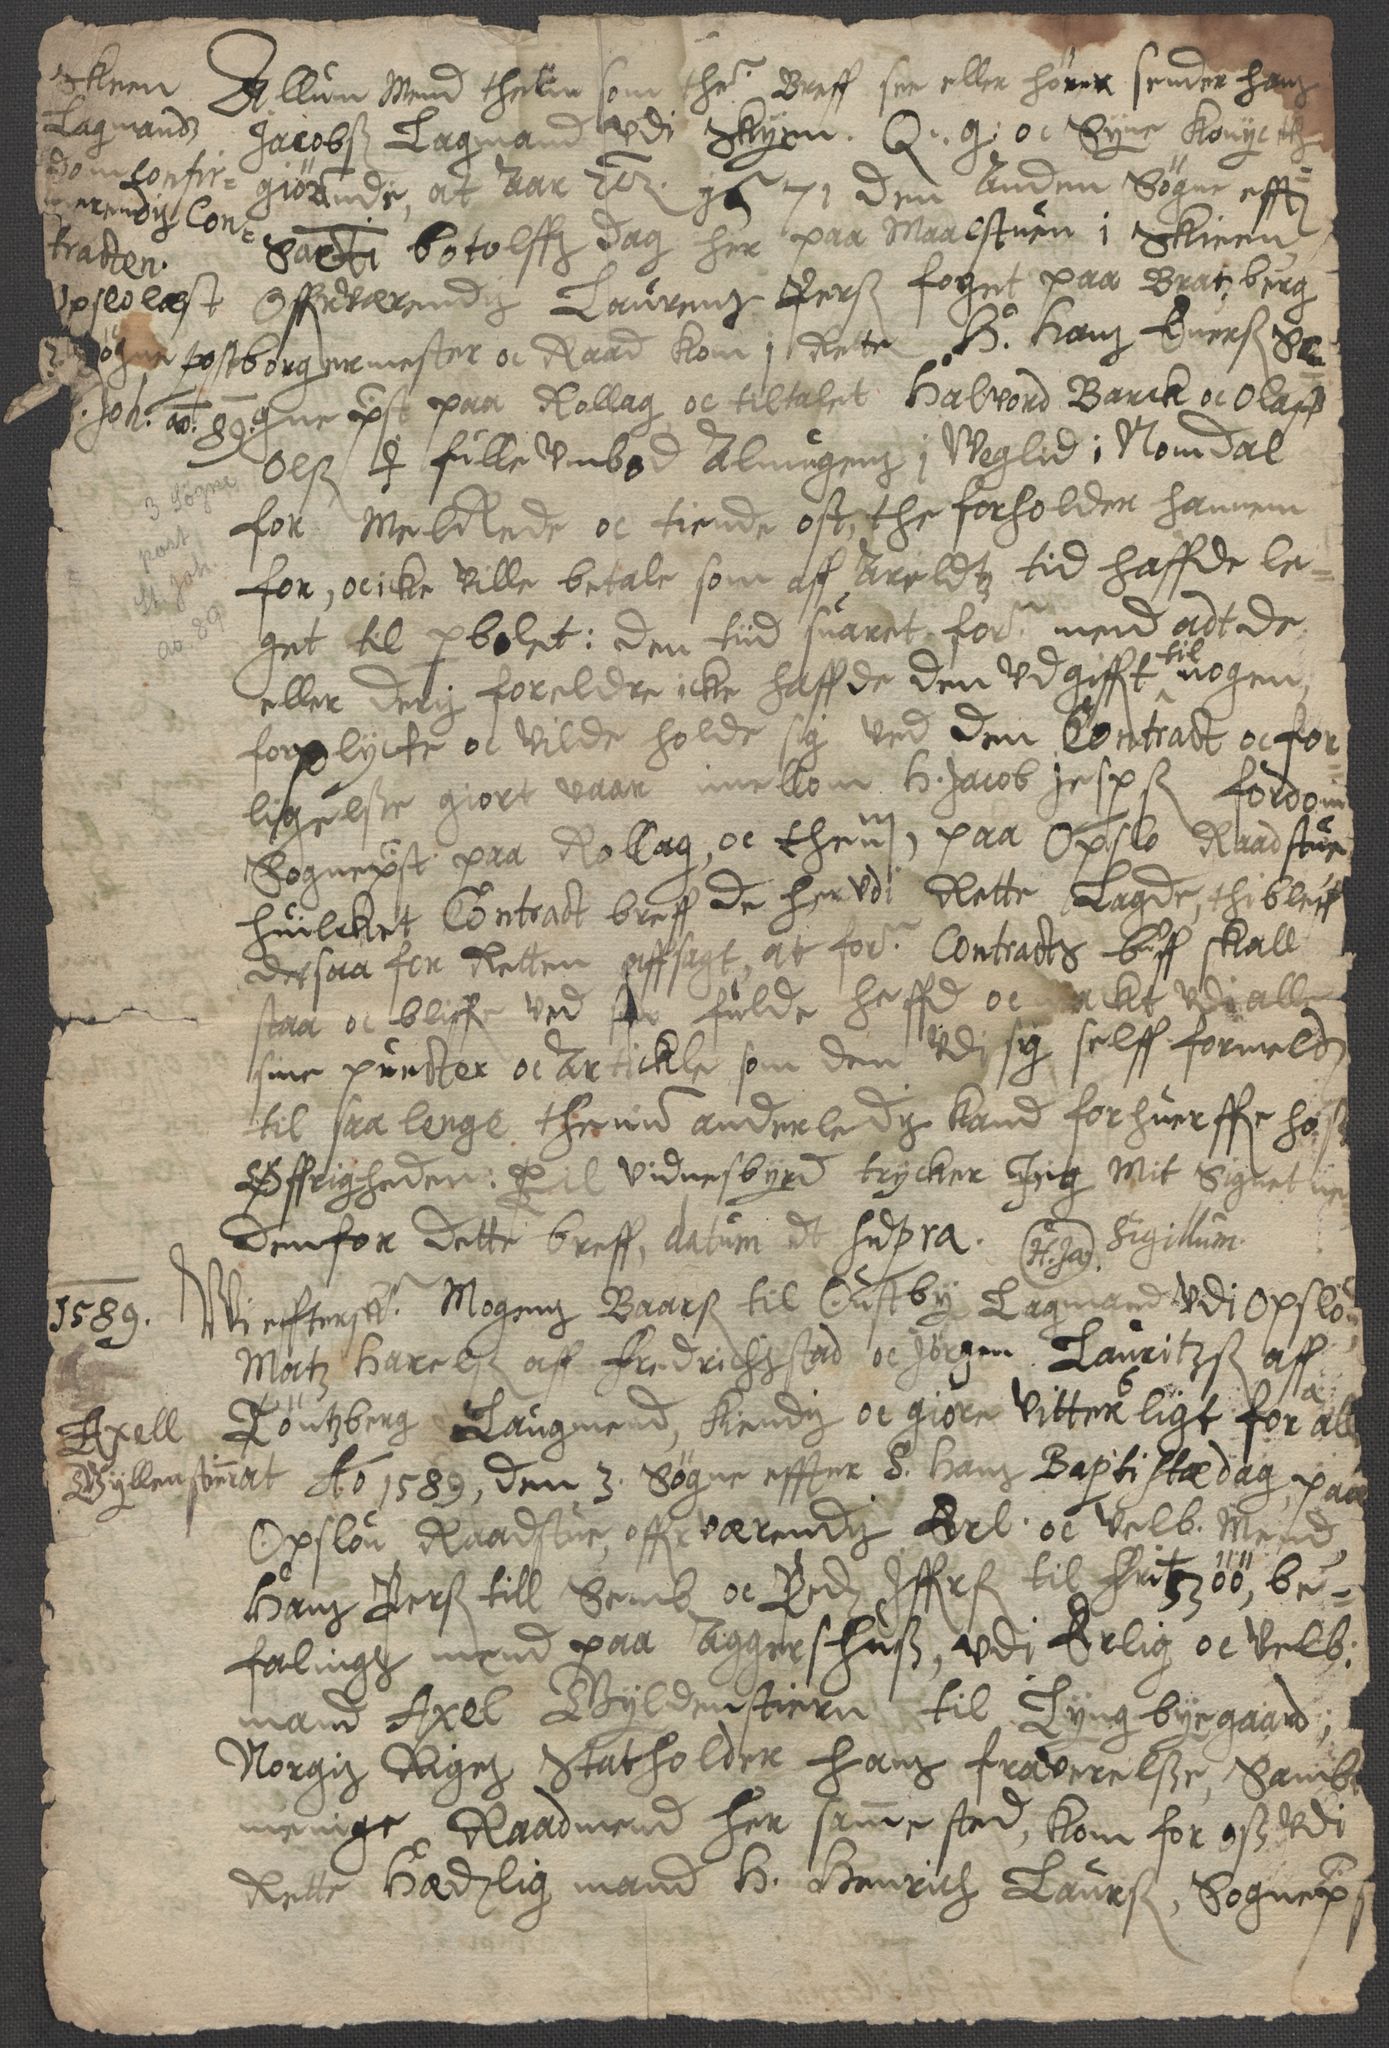 Skeen
Lagmands
Dom confir=
merendis Con=
tracten.
Opslo læst
3 Søgne post
S. Joh. ao. 89.
3 Søgne
post
St. Joh.
ao. 89
Allum Mend thennom som thr. Breff see eller hører sender hans
Jacobß Lagmand vdi Skyen. Q. g. oc Syne Konyctß
giörendis, at Aar 71 den Anden Sögne efftr
Sancti botolffs dag her paa Maalstuen i Skieen
Offruærendis Laurens Perß foget paa Bratzberg
borgermester oc Raad kom j Rette H. Hans Euerß So=
gne pst paa Rollag, oc tiltalet Halvord Barck oc Olaff
Olß p fulle Vmbod Almugens j Weglid i Nomdal
for Melkrede oc tiende ost, the forholder hannem
for, oc icke ville betale som aff Arildtz tid haffde le=
get til pbolet: den tiid suaret forne mend adt de
eller deris foreldre icke haffde den Vdgifft til nogen
forplycte oc vilde holde sig ved den Contract oc for=
ligelße giort vaar imellom H. Jacob Jespß fordom
Sognepst paa Rollag, oc them, paa Opslo Raadstue
huilcket Contract breff de her vdi Rette Lagde, thi bleff
der saa for Retten affsagt, at forne Contracts breff skall
staa oc bliffe ved sin fulde heffd oc mackt vdi alle
sine puncter oc Artickle som den vdi sig selff formeld
til saa lenge thennom anderledis kand forhuerffe hoß
Øffrigheden: Til vidnesbyrd trycker Jeg Mit Signet ne
denfor dette breff, datum vt supra. (H. Ja). Sigillum.
1589.
Wi effterschr. Mogens Baarß til Oustby Lagmand vdi Opslo,
Matz Harelß aff Fredrichstad oc Jörgen Lauritzß aff
Axell
Gyllenstierat
Töntzberg Laugmend, kiendis oc giöre vitterligt for alle
Ao 1589, den 3. Søgne effter S. Hans Baptistæ dag, paa
Opslou Raadstue, offruærendis Erl. oc Velb. Mend,
Hans Perß till Semb oc Peder Iffrß til Fritzöö, be=
falings mend paa Aggershuß, vdi Erlig oc Velb:
mand Axel Gyldenstiern til Lyngbyegaard,
Norgis Rigis Statholder hans fraverelße, Sambt
menige Raadmend her samme sted, kom for oß vdi
Rette Hæderlig mand H. Henrich Laurß, Sognepst